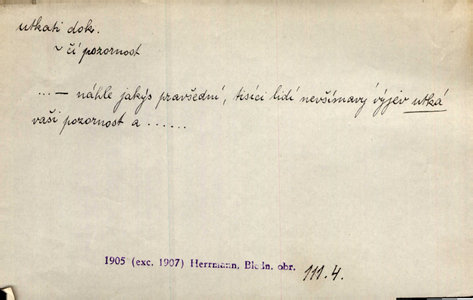 utkati dok.
~ čí pozornost
... — náhle jakýs pravšední, tisíci lidí nevšímavý výjev utká
vaši pozornost a ......
1905 (exc. 1907) Herrmann, Bledn. obr. 111.4.